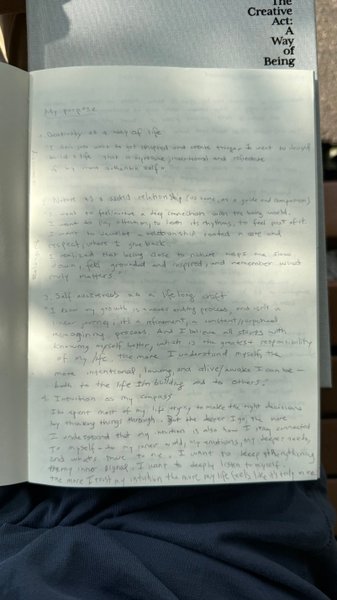 The
Creative
Act:
A
Way
of
Being
My purpose
1. Creativity as a way of life
"I don't just want to get inspired and create things, I want to
build a life that is expressive, intentional and
is my most authentic self."
2. Nature as a relationship (as home, as a guide and companion)
"I want to cultivate a deep connection with the living world,
I want to pay attention, to learn its rhythms, to feel part of it.
I want to develop a relationship rooted in care and
respect, where I give back.
I realized that being close to nature helps me slow
down, feel grounded and inspired, and remember what
truly matters"
3. Self awareness as a life long craft
"I know my growth is a never ending process, and isn't a
linear journey, it's a refinement, a constant/perpetual
reimagining process. And I believe all starts with
knowing myself better, which is the greatest responsibility
of my life. The more I understand myself, the
more intentional, loving, and alive/awake I can be –
both to the life I'm building and to others."
4. Intuition as my compass
I've spent most of my life trying to make the right decisions
by thinking things through. But the deeper I go, the more
I understand that my intuition is also how I stay connected
to myself – to my inner world, my emotions, my deeper needs,
and what's true to me. I want to keep strengthening
my inner signal. I want to deeply listen to myself.
The more I trust my intuition the more my life feels like it's truly mine.